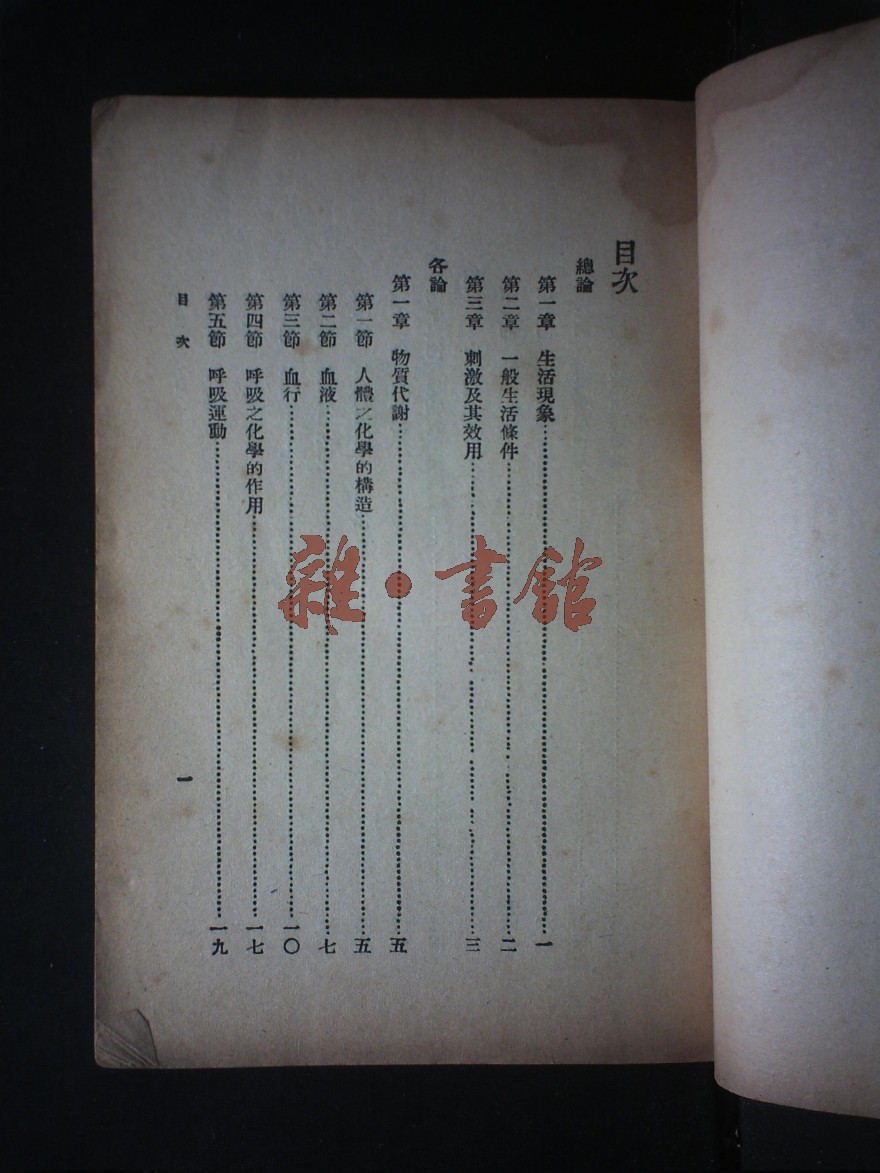 目次
總論
第一章 生活現象……一
第二章 一般生活條件……二
第三章 刺激及其效用……三
各論
第一章 物質代謝……五
第一節 人體之化學的構造……五
第二節 血液……七
第三節 血行……一〇
第四節 呼吸之化學的作用……一七
第五節 呼吸運動……一九
目次
一
雜·書館